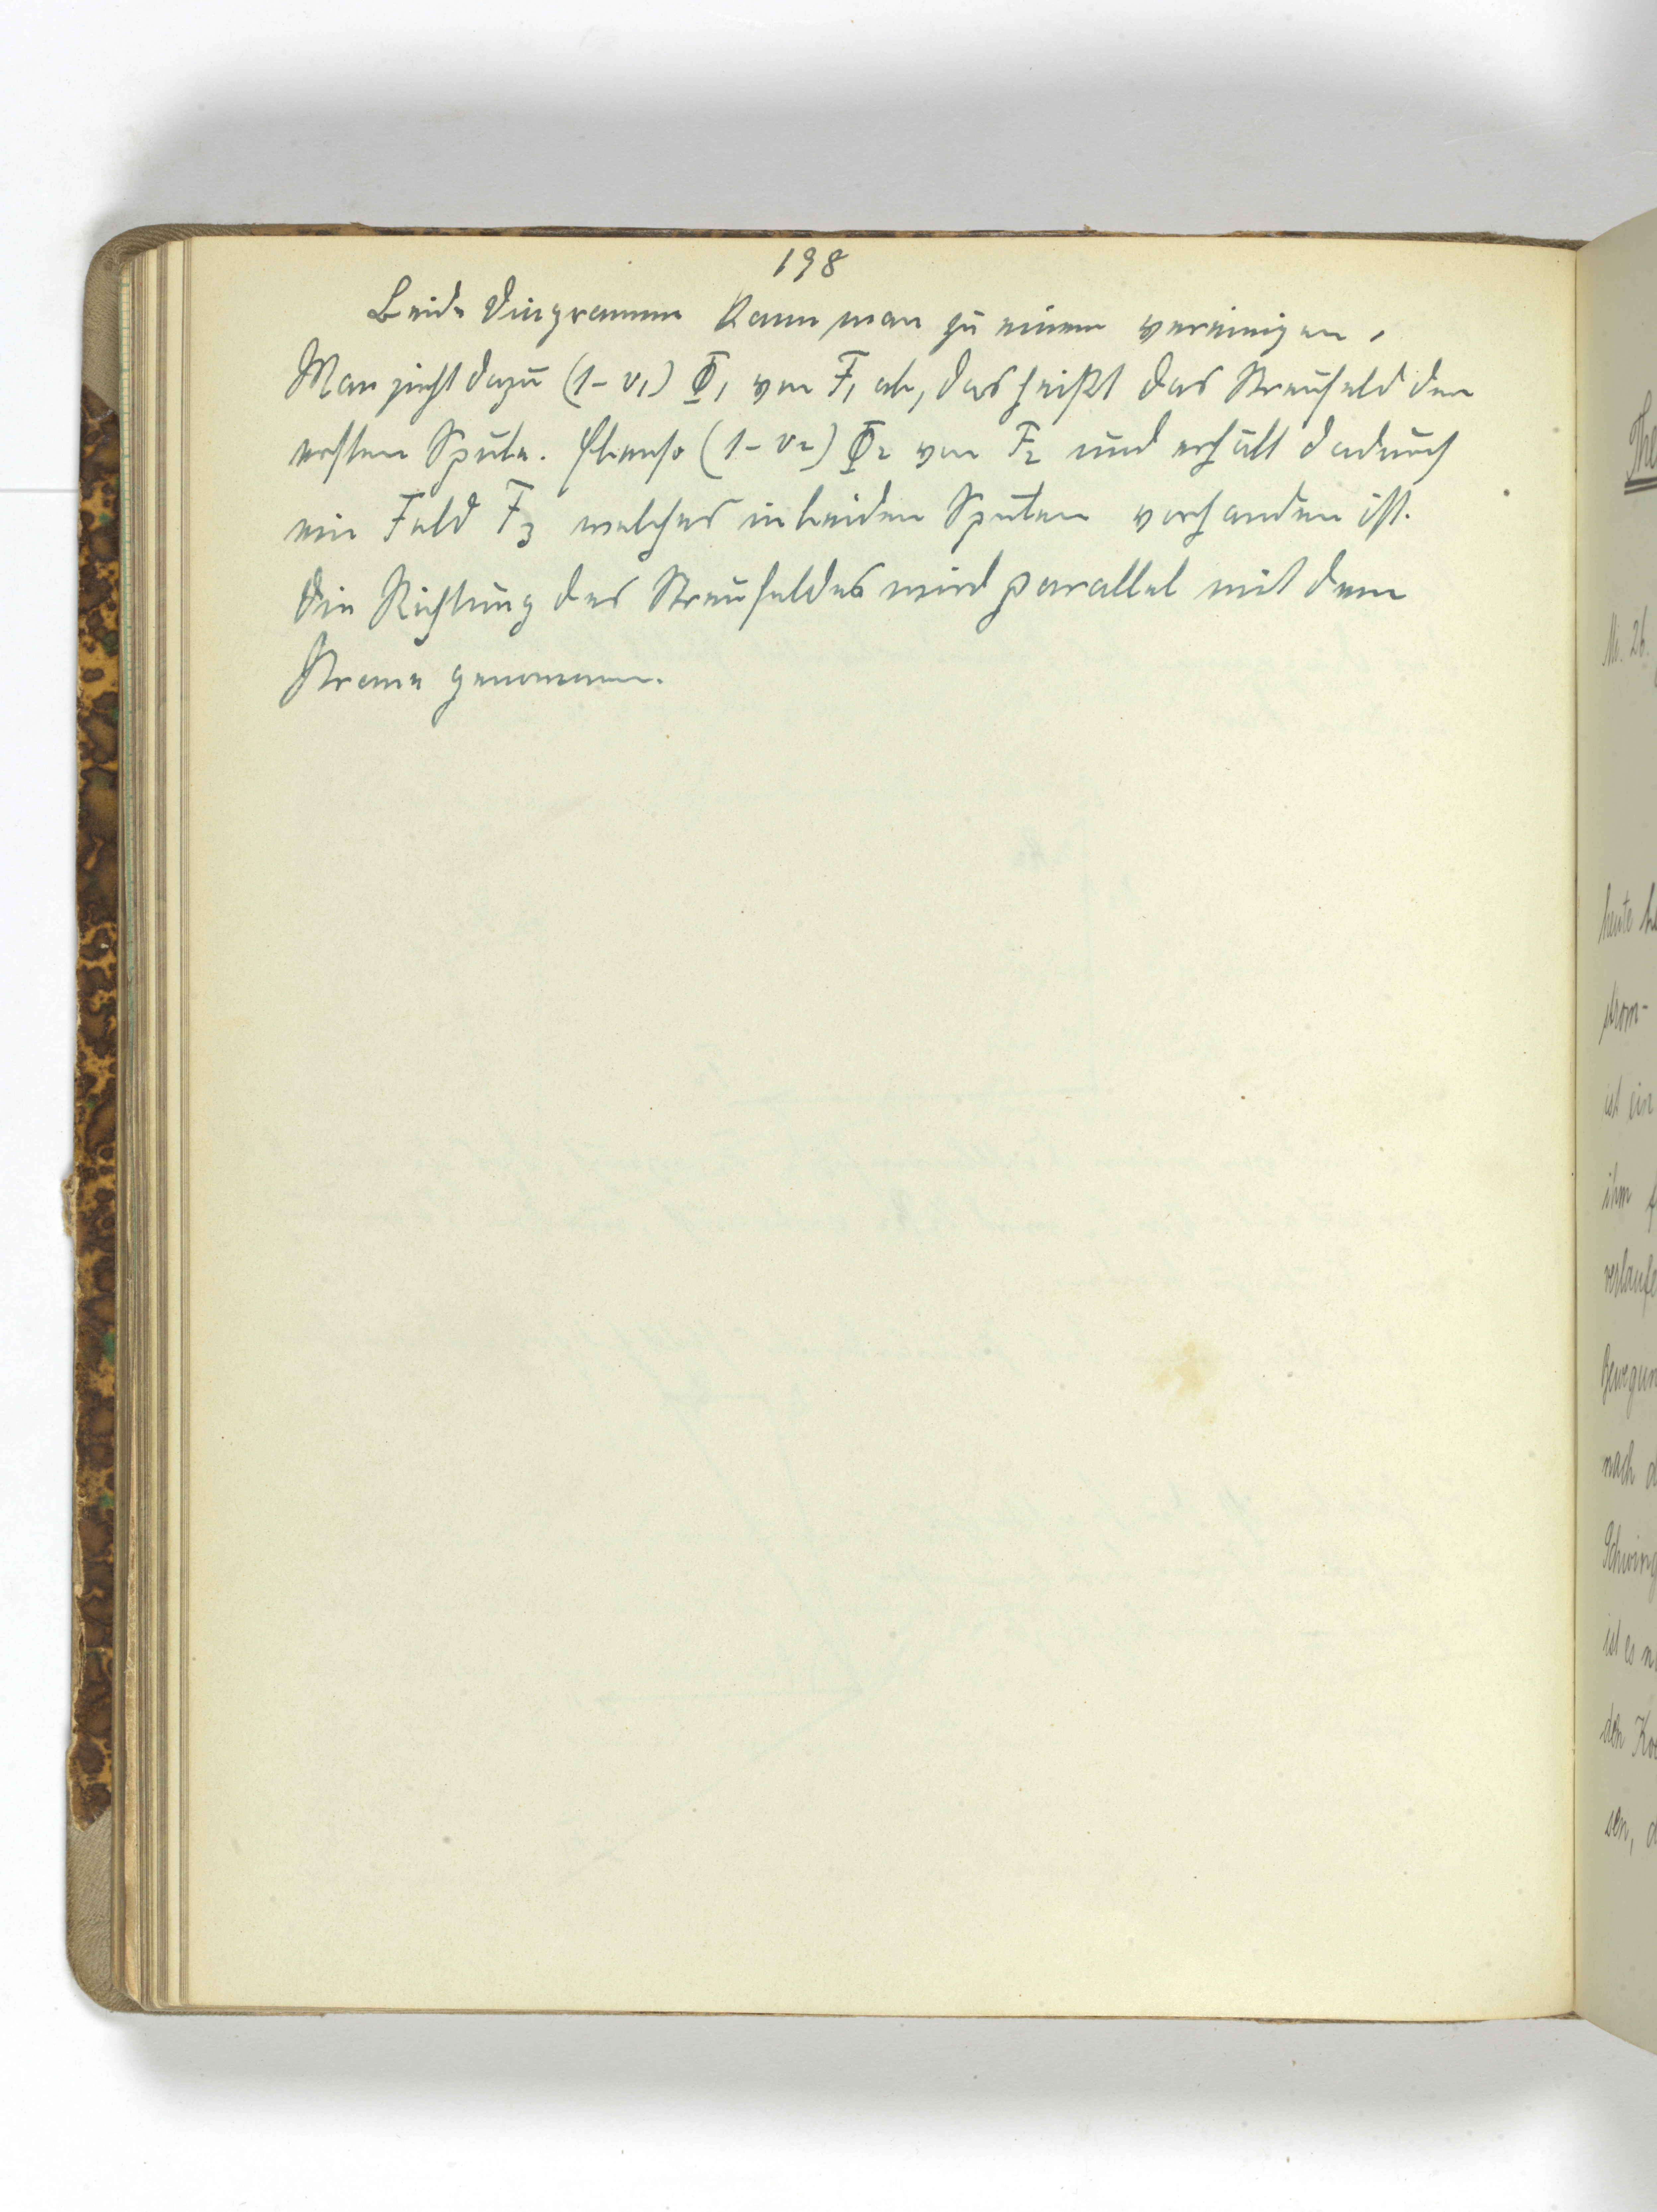 198
Beide Diagramme kann man zu einem vereinigen.
Man zieht dazu (1-v₁) Φ₁ von F₁ ab, das heißt das Streufeld der
ersten Spule. Ebenso (1-v₂) Φ₂ von F₂ und erhält dadurch
ein Feld F₃ welches in beiden Spulen vorhanden ist.
Die Richtung des Streufeldes wird parallel mit dem
Strome genommen.
The
Nr. 26.
heute
strom-
ist ein
ihm
verlaufe
Bewegun
nach d
Schwing
ist es n
den Ko
sen, d